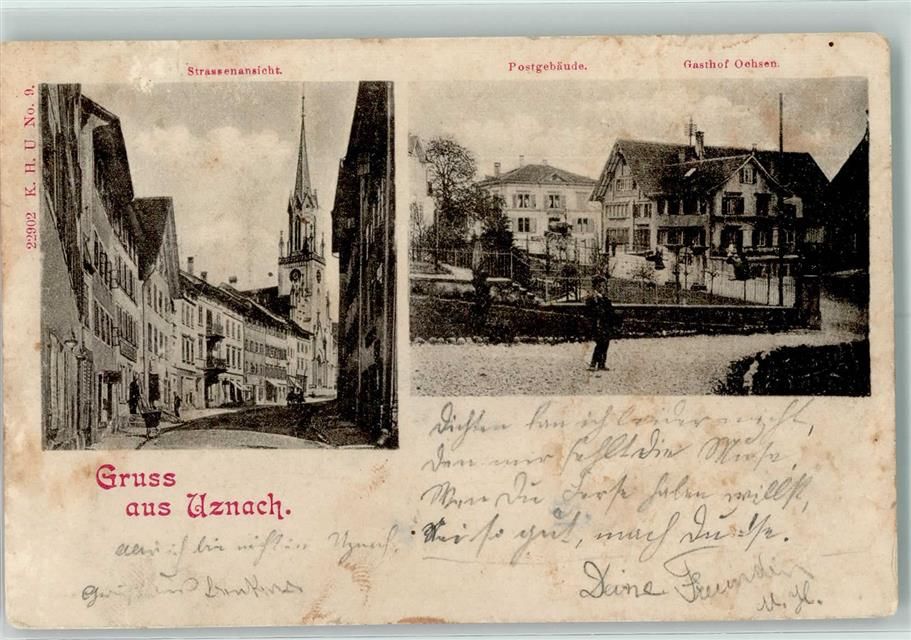 Strassenansicht.
Postgebäude.
Gasthof Ochsen.
22902 K. H. U No. 9.
Gruss
aus Uznach.
Dichten kan ich leider nicht,
den mir fehlt die Muse,
Wen Du Ferse haben willst,
Sei so gut, mach Du se.
Deine Freundin
M. H.
ich bin nicht in Uznach,
aus